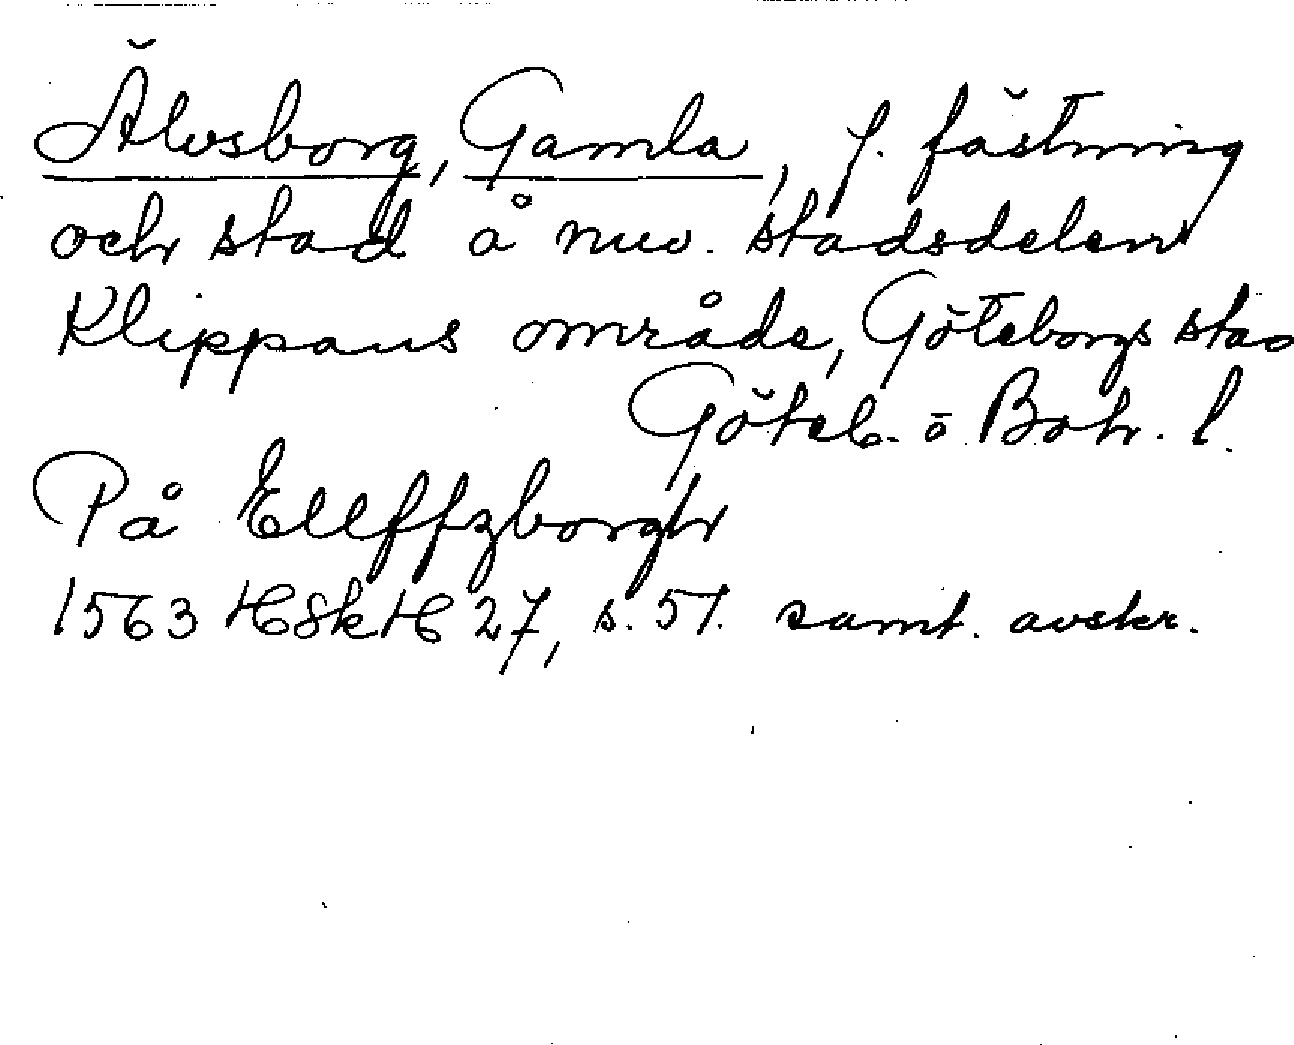 Älvsborg, Gamla, f. fästning
och stad å nuv. stadsdelen
Klippans område, Göteborgs stad
Göteb. o. Boh. l.
På Ellffzborgh
1563 HSkH 27, s. 51. samt. avskr.